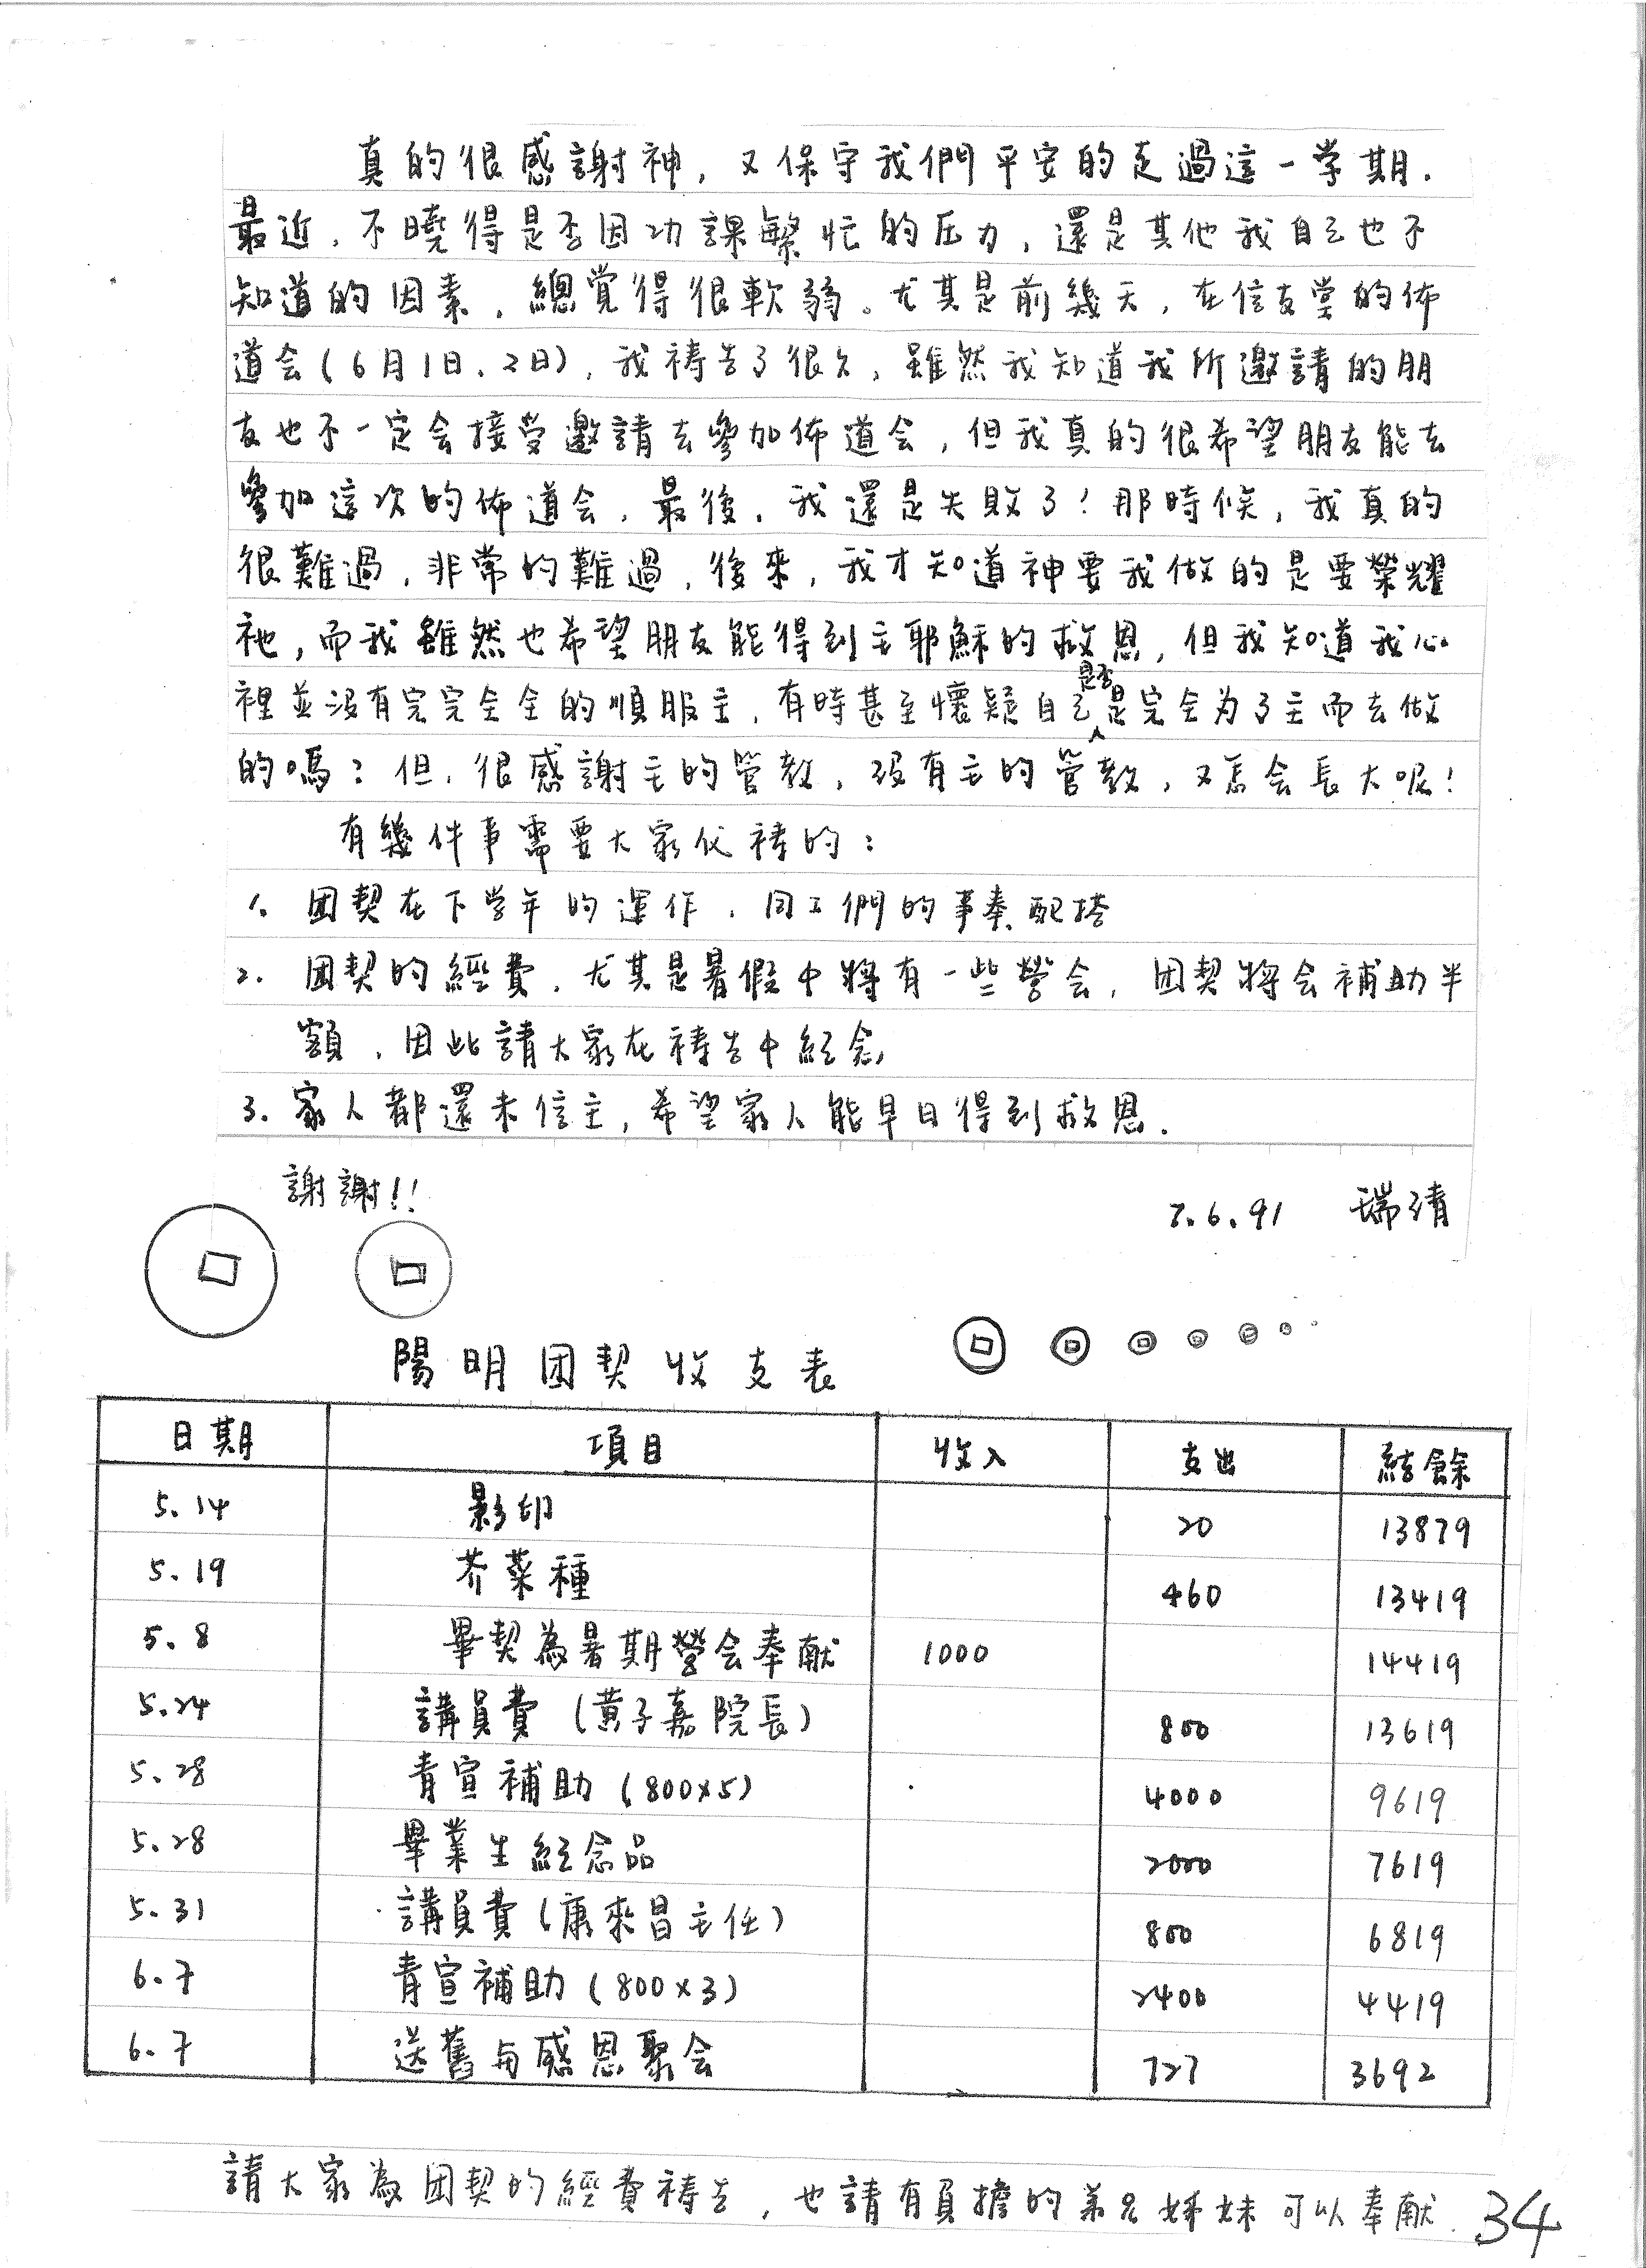 真的很感謝神，又保守我們平安的走過這一学期.
最近，不曉得是否因功課繁忙的压力，還是其他我自己也不
知道的因素，總覺得很軟弱。尤其是前幾天，在信友堂的佈
道会(6月1日、2日)，我禱告了很久，雖然我知道我所邀請的朋
友也不一定会接受邀請去參加佈道会，但我真的很希望朋友能去
參加這次的佈道会，最後，我還是失敗了！那時候，我真的
很難過，非常的難過，後來，我才知道神要我做的是要榮耀
祂，而我雖然也希望朋友能得到主耶穌的救恩，但我知道我心
裡並没有完完全全的順服主，有時甚至懷疑自己是否是完全为了主而去做
的嗎？但，很感謝主的管教，没有主的管教，又怎会長大呢！
有幾件事需要大家代禱的：
1. 团契在下学年的運作，同工們的事奉、配搭
2. 团契的經費，尤其是暑假中將有一些營会，团契將会補助半
額，因此請大家在禱告中紀念
3. 家人都還未信主，希望家人能早日得到救恩.
謝謝!!
7.6.91 瑞靖
陽明团契收支表
日期 項目 收入 支出 結餘
5.14 影印 20 13879
5.19 芥菜種 460 13419
5.8 畢契為暑期營会奉献 1000 14419
5.24 講員費(黃子嘉院長) 800 13619
5.28 青宣補助(800×5) 4000 9619
5.28 畢業生紀念品 2000 7619
5.31 講員費(康來昌主任) 800 6819
6.7 青宣補助(800×3) 2400 4419
6.7 送舊与感恩聚会 727 3692
請大家為团契的經費禱告，也請有負擔的弟兄姊妹可以奉献.
34